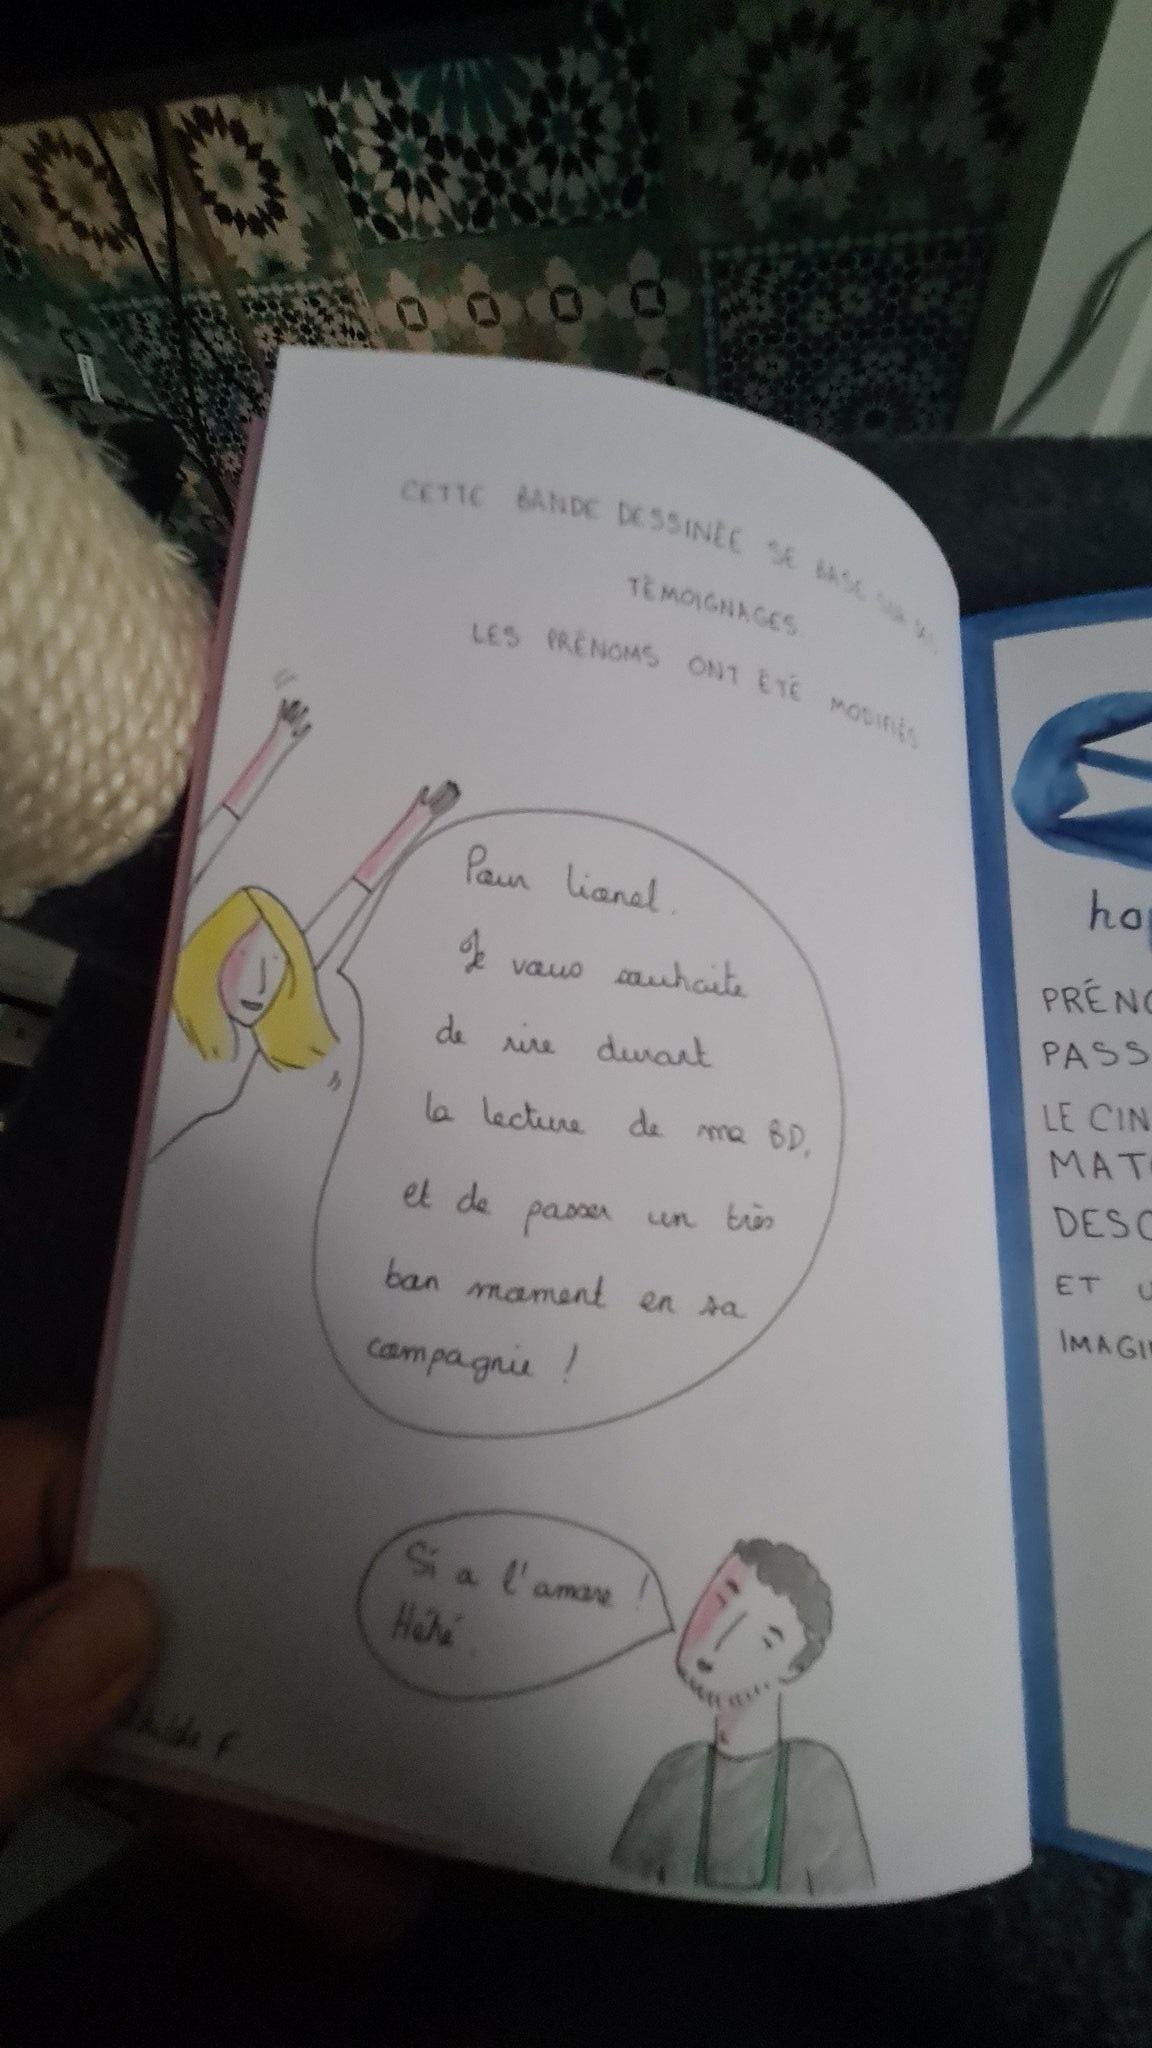 CETTE BANDE DESSINÉE SE BASE SUR DES
TÉMOIGNAGES
LES PRÉNOMS ONT ÉTÉ MODIFIÉS
Pour Lionel.
Je vous souhaite
de rire durant
la lecture de ma BD,
et de passer un très
bon moment en sa
compagnie !
Si a l'amore !
Héhé.
PRÉNO
PASS
LE CIN
MATO
DESC
ET U
IMAGI